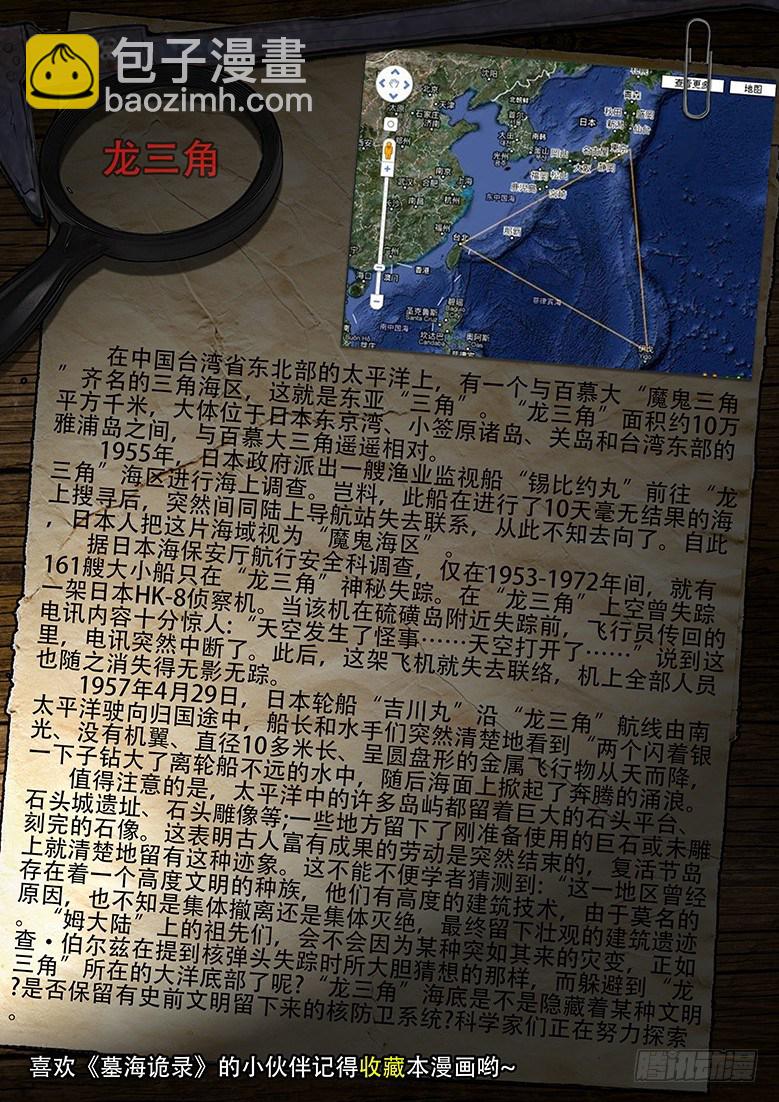 包子漫畫
baozimh.com
龙三角
查看更多
地图
沈阳
北京
天津
石家庄
济南
太原
郑州
西安
北朝鲜
首尔
大田
南韩
光州
釜山
日本
青森
秋田
盛冈
新潟
仙台
东京
名古屋
静冈
大阪
冈山
松山
福冈
宫崎
鹿儿岛
南京
合肥
上海
武汉
杭州
南昌
东中国海
福州
台北
那霸
广州
香港
澳门
海口
南中国海
菲律宾海
圣克鲁斯
Santa Cruz
碧瑶
Baguio
City
坎达巴
Candaba
奥阿斯
Oas
在中国台湾省东北部的太平洋上，有一个与百慕大“魔鬼三角
”齐名的三角海区，这就是东亚“三角”。“龙三角”面积约10万
平方千米，大体位于日本东京湾、小签原诸岛、关岛和台湾东部的
雅浦岛之间，与百慕大三角遥遥相对。
1955年，日本政府派出一艘渔业监视船“锡比约丸”前往“龙
三角”海区进行海上调查。岂料，此船在进行了10天毫无结果的海
上搜寻后，突然间同陆上导航站失去联系，从此不知去向了。自此
，日本人把这片海域视为“魔鬼海区”。
据日本海保安厅航行安全科调查，仅在1953-1972年间，就有
161艘大小船只在“龙三角”神秘失踪。在“龙三角”上空曾失踪
一架日本HK-8侦察机。当该机在硫磺岛附近失踪前，飞行员传回的
电讯内容十分惊人：“天空发生了怪事……天空打开了……”说到这
里，电讯突然中断了。此后，这架飞机就失去联络，机上全部人员
也随之消失得无影无踪。
1957年4月29日，日本轮船“吉川丸”沿“龙三角”航线由南
太平洋驶向归国途中，船长和水手们突然清楚地看到“两个闪着银
光、没有机翼、直径10多米长、呈圆盘形的金属飞行物从天而降，
一下子钻大了离轮船不远的水中，随后海面上掀起了奔腾的涌浪。
值得注意的是，太平洋中的许多岛屿都留着巨大的石头平台、
石头城遗址、石头雕像等;一些地方留下了刚准备使用的巨石或未雕
刻完的石像。这表明古人富有成果的劳动是突然结束的，复活节岛
上就清楚地留有这种迹象。这不能不便学者猜测到：“这一地区曾经
存在着一个高度文明的种族，他们有高度的建筑技术，由于莫名的
原因，也不知是集体撤离还是集体灭绝，最终留下壮观的建筑遗迹
。“姆大陆”上的祖先们，会不会因为某种突如其来的灾变，正如
查·伯尔兹在提到核弹头失踪时所大胆猜想的那样，而躲避到“龙
三角”所在的大洋底部了呢？“龙三角”海底是不是隐藏着某种文明
?是否保留有史前文明留下来的核防卫系统?科学家们正在努力探索
。
喜欢《墓海诡录》的小伙伴记得收藏本漫画哟~
腾讯动漫